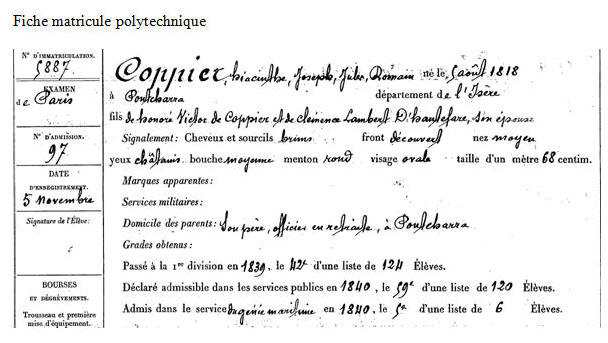 Fiche matricule polytechnique
N° D'IMMATRICULATION.
5887
EXAMEN
de Paris
N° D'ADMISSION.
97
DATE
D'ENREGISTREMENT.
5 Novembre
Signature de l'Élève:
BOURSES
ET DÉGRÈVEMENTS.
Trousseau et première
mise d'équipement.
Coppier, hiacinthe, Joseph, Jules, Romain né le 5 août 1818
à Pontcharra département de l'Isère
fils de honoré Victor de Coppier et de Clémence Lambert D'hautefare, son épouse
Signalement: Cheveux et sourcils bruns front découvert nez moyen
yeux châtains bouche moyenne menton rond visage ovale taille d'un mètre 68 centim.
Marques apparentes:
Services militaires:
Domicile des parents: Son père, officier en retraite, à Pontcharra
Grades obtenus:
Passé à la 1re division en 1839, le 42e d'une liste de 124 Élèves.
Déclaré admissible dans les services publics en 1840, le 59e d'une liste de 120 Élèves.
Admis dans le service du génie maritime en 1840, le 5e d'une liste de 6 Élèves.